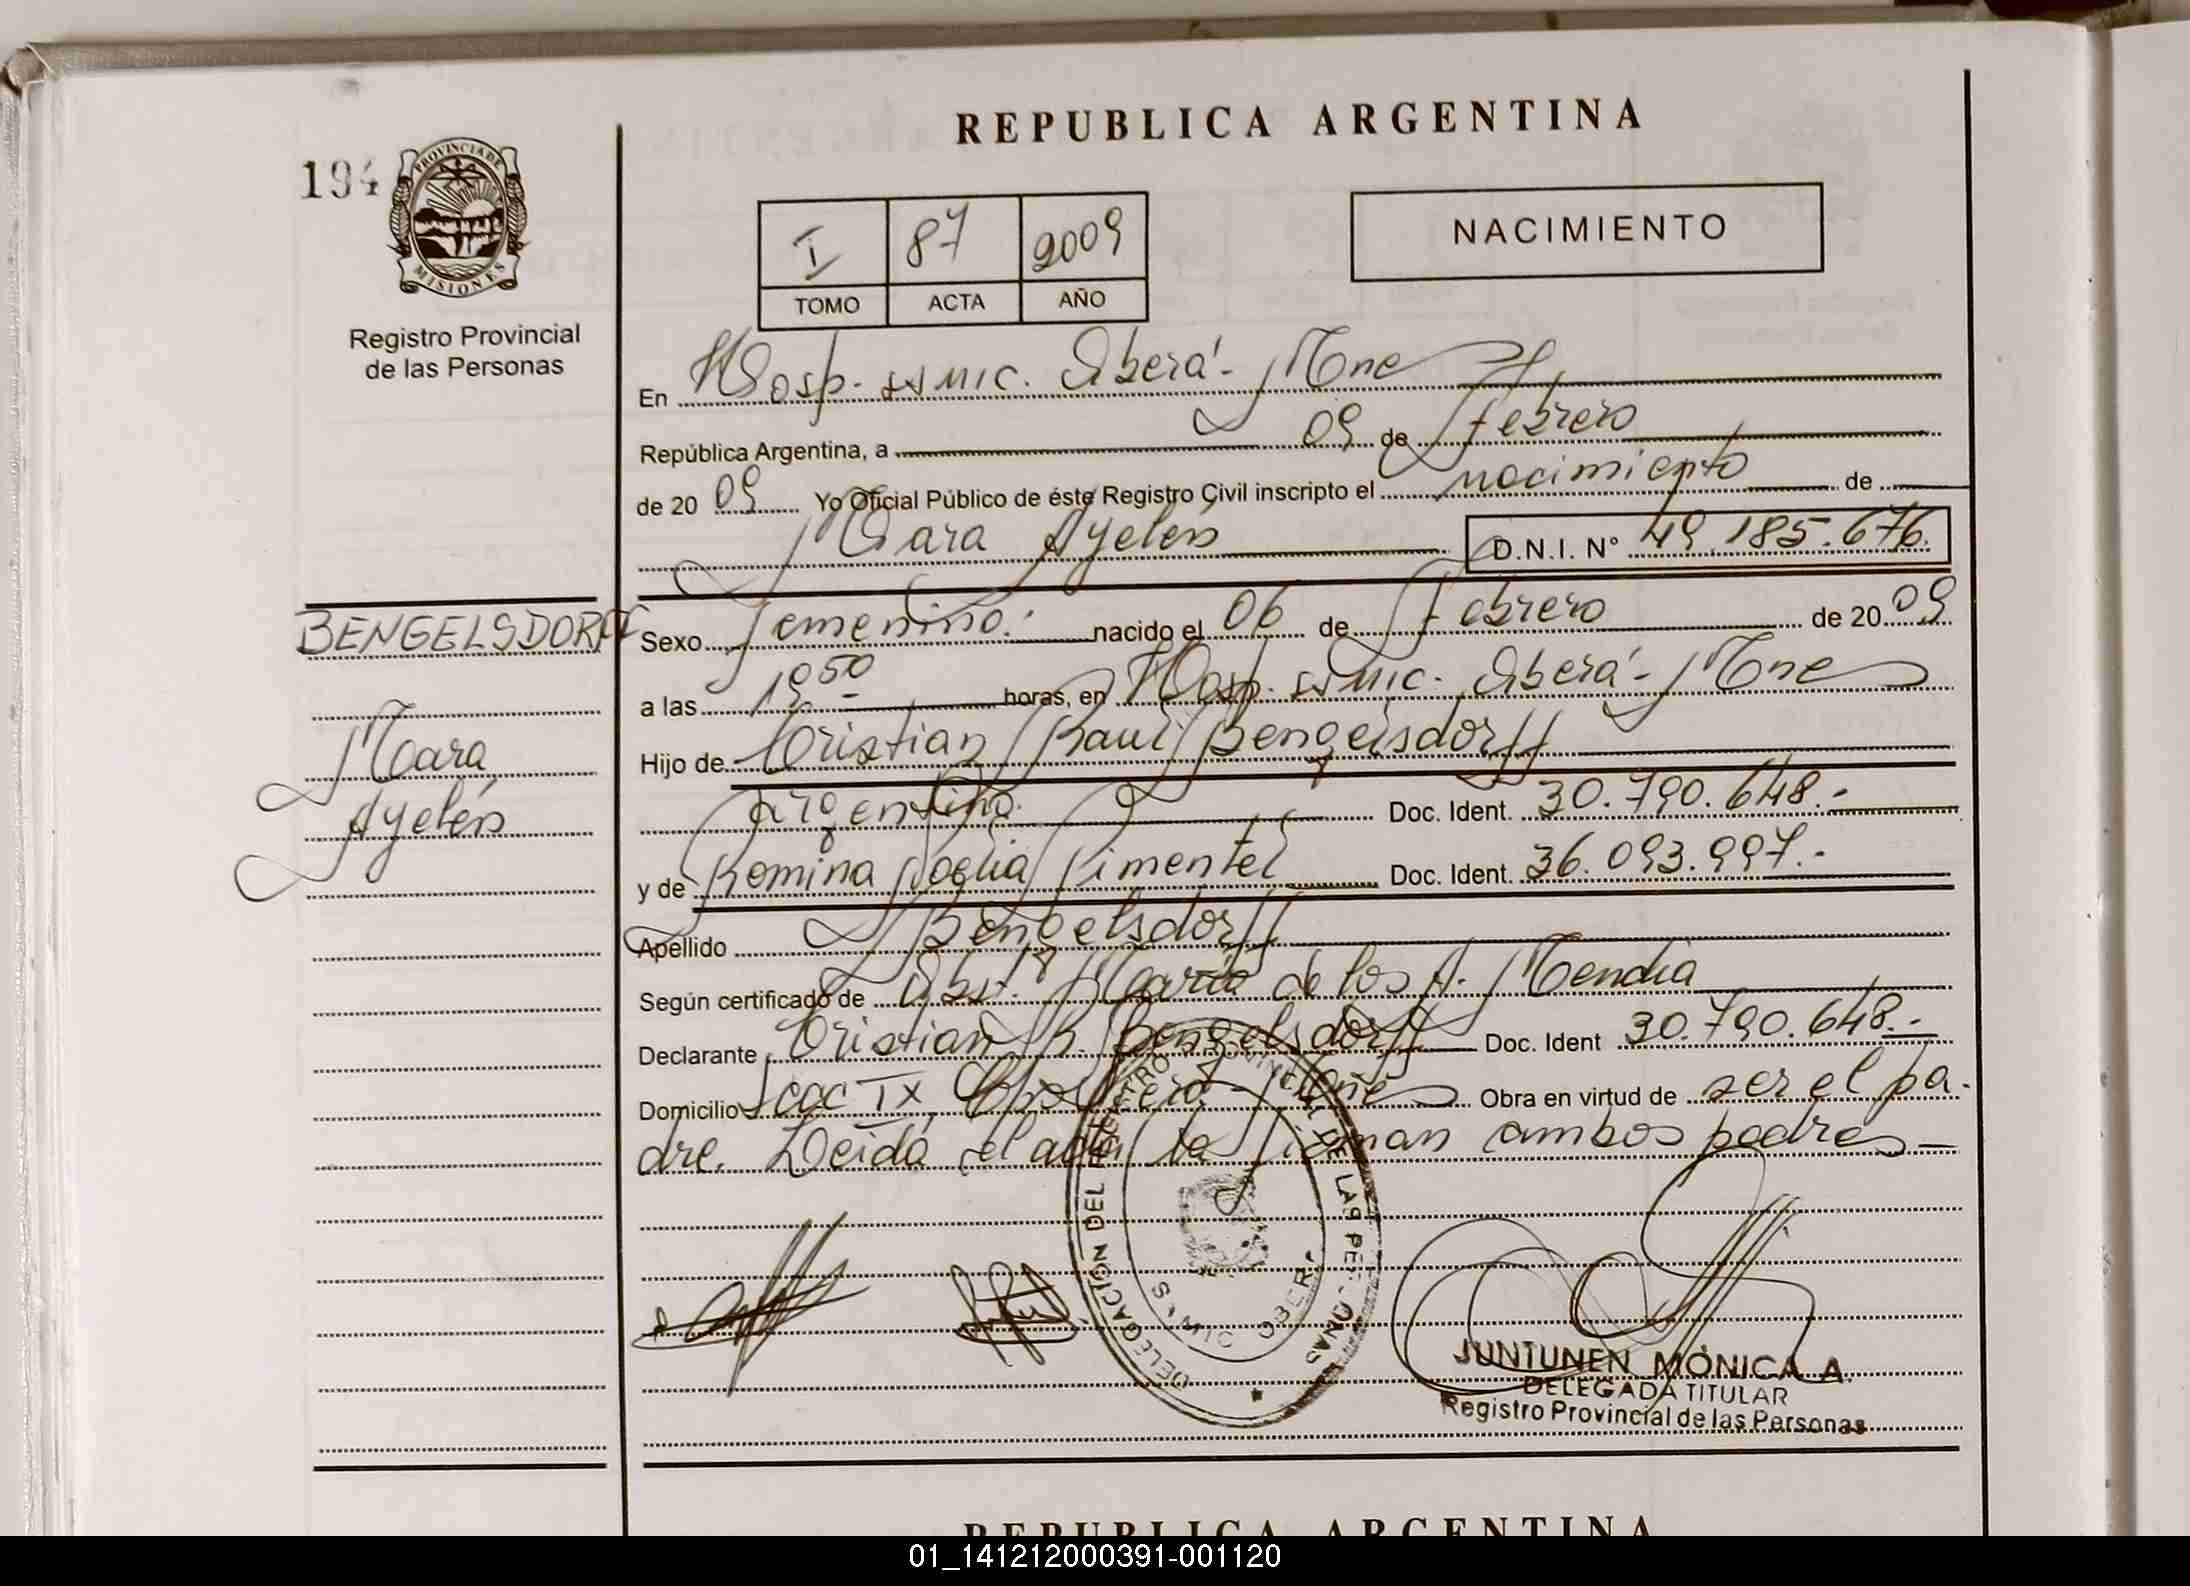 REPUBLICA ARGENTINA
194
PROVINCIA DE
MISIONES
Registro Provincial
de las Personas
I 87 2009
TOMO ACTA AÑO
NACIMIENTO
En Hosp. SAMIC. Oberá - Mnes
República Argentina, a 09 de febrero
de 20 09 Yo Oficial Público de éste Registro Civil inscripto el nacimiento de
Mara Ayelén D.N.I. N° 49.185.676.
BENGELSDORFF
Mara
Ayelén
Sexo femenino. nacido el 06 de Febrero de 20 09
a las 19 50 horas, en Hosp. SAMIC. Oberá - Mnes
Hijo de Cristian Raul Bengelsdorff
argentino. Doc. Ident. 30.790.648.-
y de Romina Pimentel Doc. Ident. 36.093.997.-
Apellido Bengelsdorff
Según certificado de Obst. María de los A. Mendia
Declarante Cristian R. Bengelsdorff Doc. Ident 30.790.648.-
Domicilio IX, Mnes Obra en virtud de ser el pa-
dre. Leida el acta la firman ambos padres
DELEGACIÓN DEL REGISTRO PROVINCIAL DE LAS PERSONAS
JUNTUNEN MÓNICA A.
DELEGADA TITULAR
Registro Provincial de las Personas
REPUBLICA ARGENTINA
01_141212000391-001120